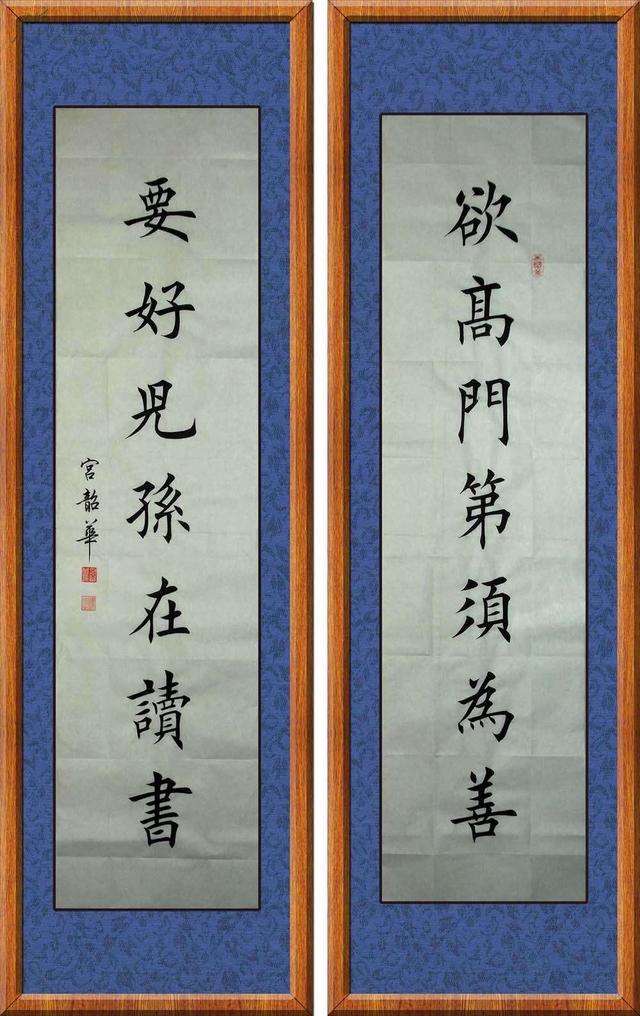 欲髙門第須為善
要好兒孫在讀書
宫韶華